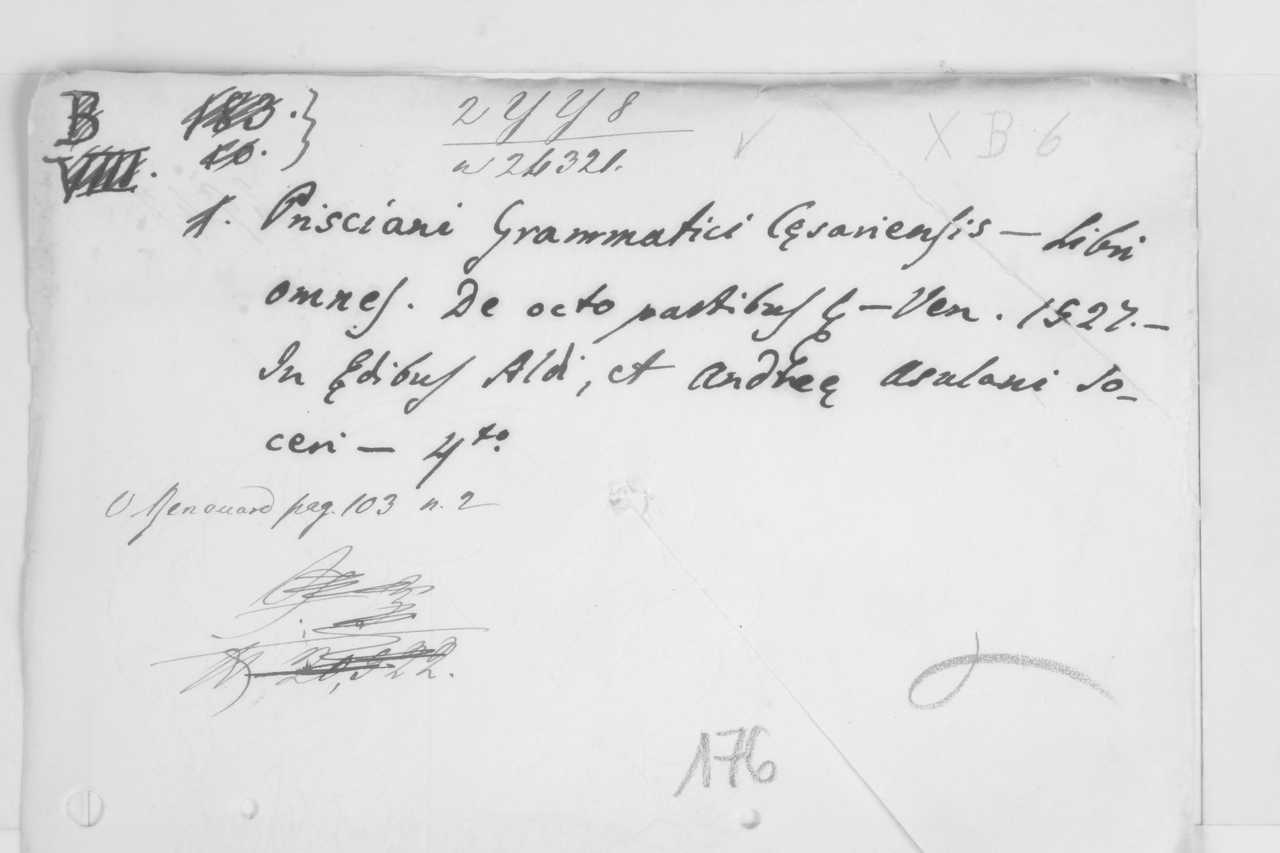 B 183. } 2 Y Y 8 X B 6
VIII. 10. } n 24321.
1. Prisciani Grammatici Cęsariensis – Libri
omnes. De octo partibus – Ven. 1527. –
In Ędibus Aldi, et Andreę Asulani So-
ceri – 4to.
V Renouard pag. 103 n. 2
176